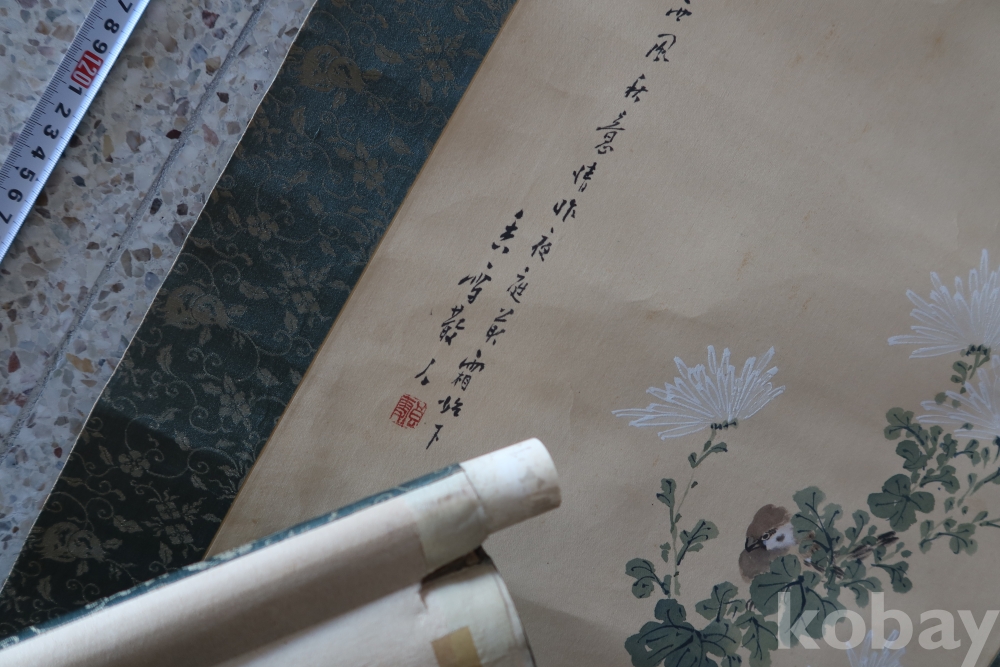 西風秋意情昨夜庭前霜始下
杏雪散人
7 8 9 120 1 2 3 4 5 6 7
kobay